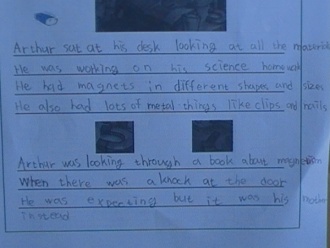 Arthur sat at his desk looking at all the
He was working on his science homework
He had magnets in different shapes and sizes
He also had lots of metal things like clips and nails
Arthur was looking through a book about
When there was a knock at the door
He was expecting but it was his mother
instead